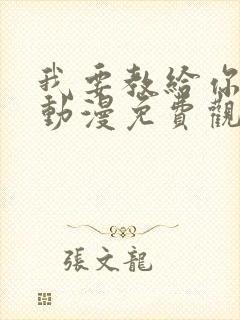 我要教給你
動漫免費觀
張文龍